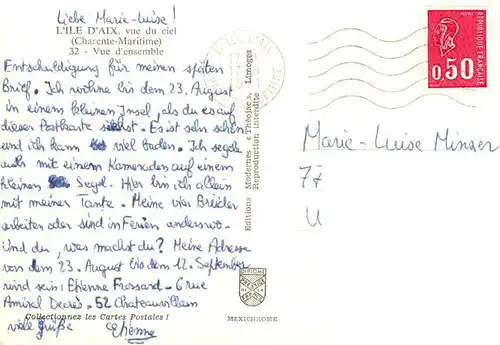 Liebe Marie-Luise!
L'ILE D'AIX, vue du ciel
(Charente-Maritime)
32 - Vue d'ensemble
Entschuldigung für meinen späten
Brief. Ich wohne bis dem 23. August
in einem kleinen Insel, als du es auf
dieser Postkarte siehst. Es ist sehr schön
und ich kann viel baden. Ich segle
auch mit einem Kameraden auf einem
kleinen Segel. Hier bin ich allein
mit meiner Tante. Meine vier Brüder
arbeiten oder sind in Ferien anderswo.
Und du, was machst du? Meine Adresse
von dem 23. August bis dem 12. September
wird sein: Etienne Frossard - 6 rue
Amiral Decrès - 52 Chateauvillain
Collectionnez les Cartes Postales !
viele Grüße Etienne
Editions Modernes « Théojac », Limoges
Reproduction interdite
DIPLOME
PRESTIGE
DE LA
FRANCE
MEXICHROME
REPUBLIQUE FRANÇAISE
POSTES
0,50
Marie-Luise Minzer
77
U